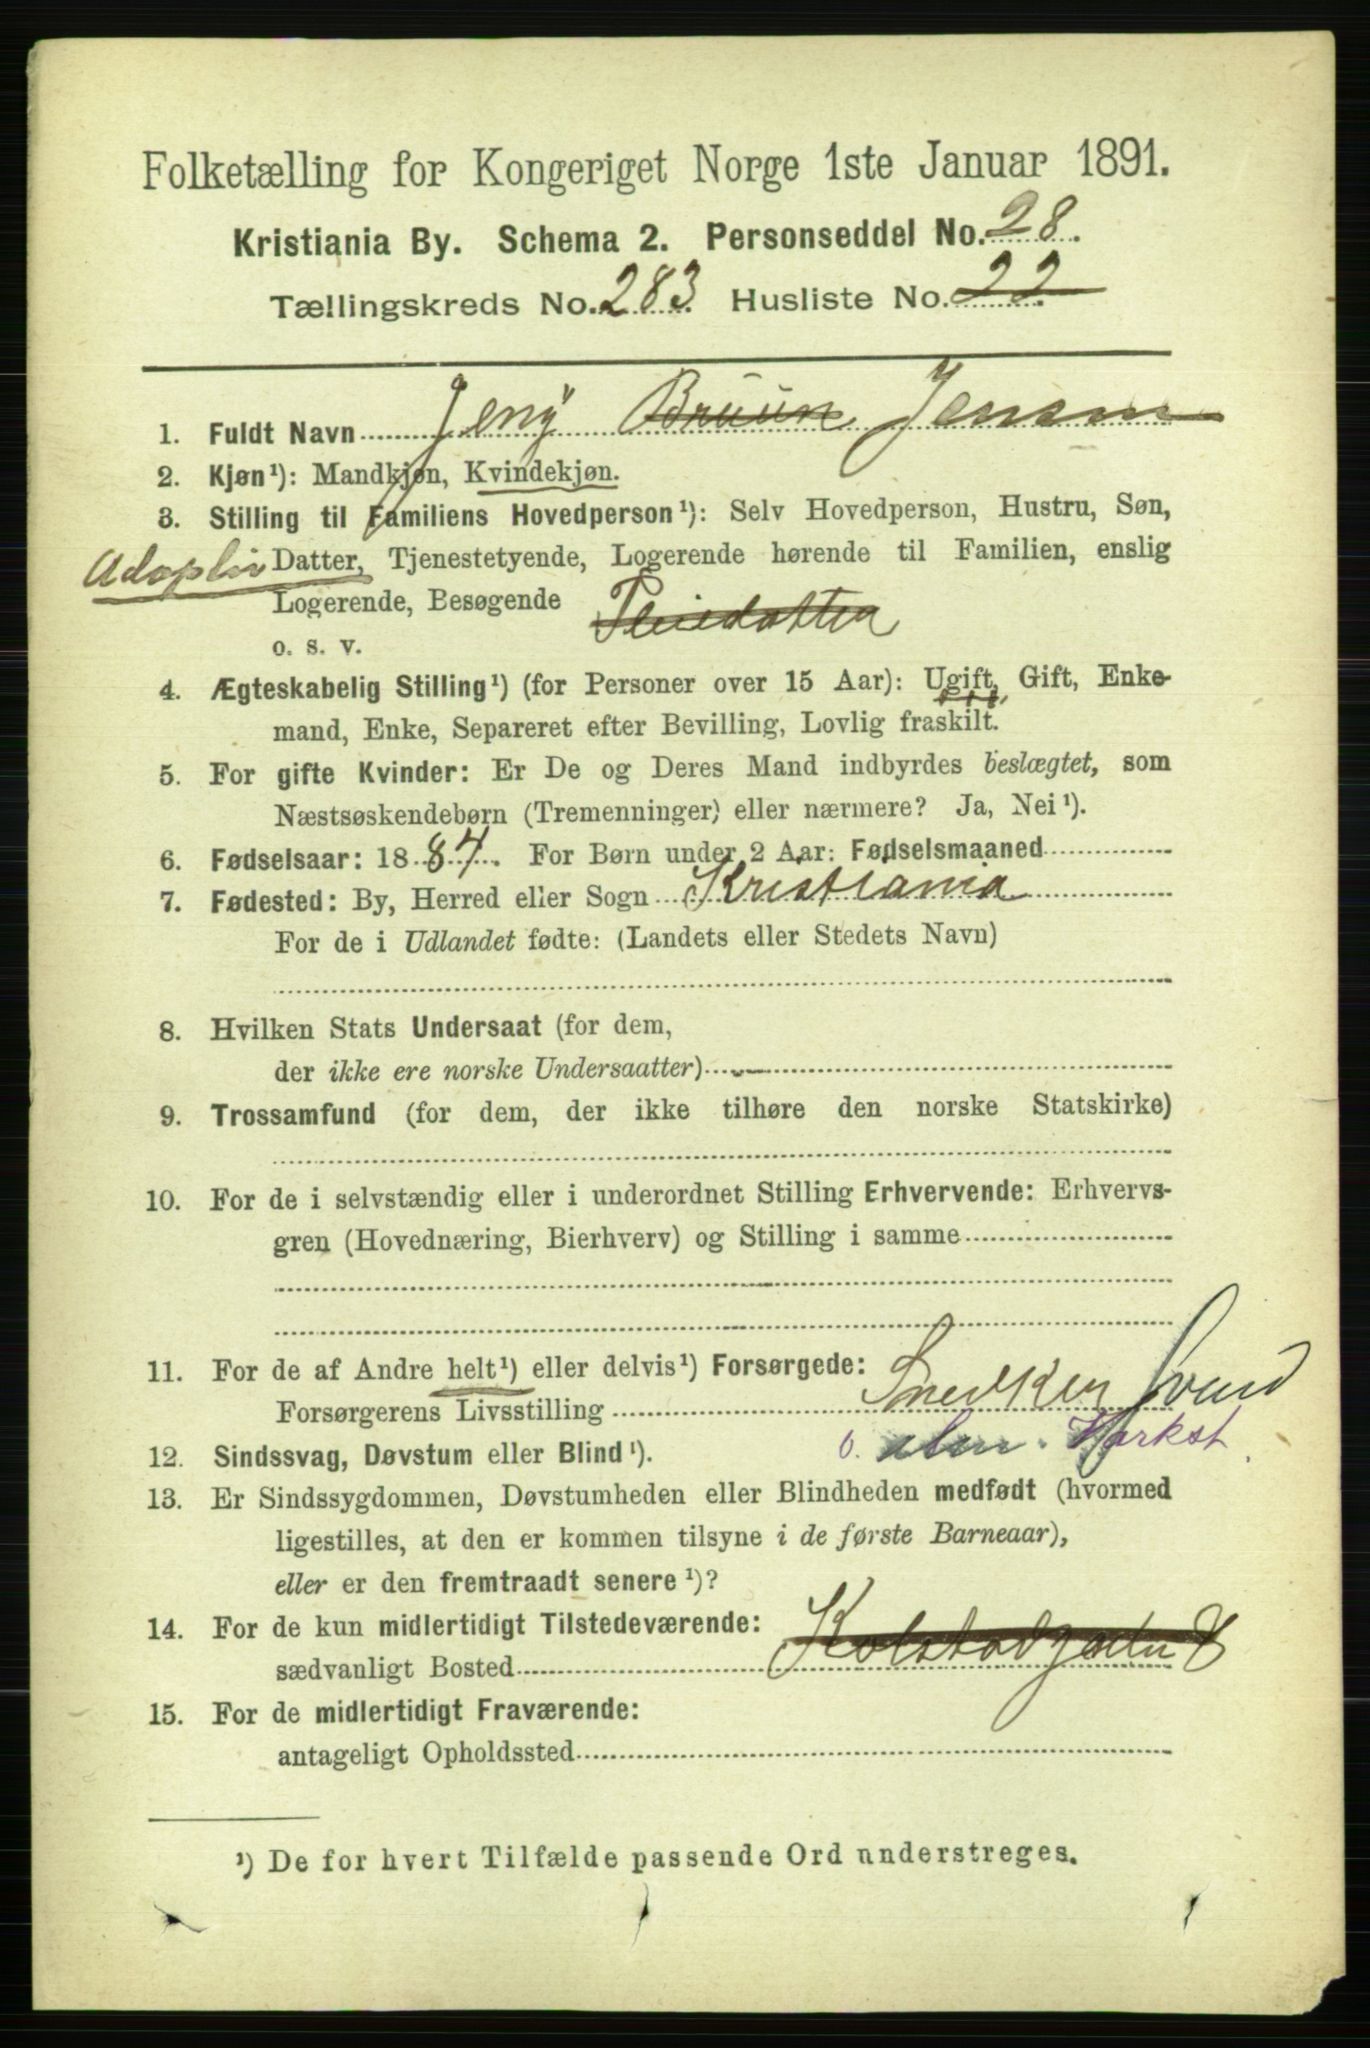 Folketælling for Kongeriget Norge 1ste Januar 1891.
Kristiania By. Schema 2. Personseddel No. 28.
Tællingskreds No. 283. Husliste No. 22.
1. Fuldt Navn Jeny Bruun Jensen
2. Kjøn¹): Mandkjøn, Kvindekjøn.
3. Stilling til Familiens Hovedperson¹): Selv Hovedperson, Hustru, Søn,
Adoptiv Datter, Tjenestetyende, Logerende hørende til Familien, enslig
Logerende, Besøgende Pleiedatter
o. s. v.
4. Ægteskabelig Stilling¹) (for Personer over 15 Aar): Ugift, Gift, Enke-
mand, Enke, Separeret efter Bevilling, Lovlig fraskilt.
5. For gifte Kvinder: Er De og Deres Mand indbyrdes beslægtet, som
Næstsøskendebørn (Tremenninger) eller nærmere? Ja, Nei¹).
6. Fødselsaar: 1887. For Børn under 2 Aar: Fødselsmaaned
7. Fødested: By, Herred eller Sogn Kristiania
For de i Udlandet fødte: (Landets eller Stedets Navn)
8. Hvilken Stats Undersaat (for dem,
der ikke ere norske Undersaatter)
9. Trossamfund (for dem, der ikke tilhøre den norske Statskirke)
10. For de i selvstændig eller i underordnet Stilling Erhvervende: Erhvervs-
gren (Hovednæring, Bierhverv) og Stilling i samme
11. For de af Andre helt¹) eller delvis¹) Forsørgede:
Forsørgerens Livsstilling Snedker Svend
12. Sindssvag, Døvstum eller Blind¹). Værkst.
13. Er Sindssygdommen, Døvstumheden eller Blindheden medfødt (hvormed
ligestilles, at den er kommen tilsyne i de første Barneaar),
eller er den fremtraadt senere¹)?
14. For de kun midlertidigt Tilstedeværende:
sædvanligt Bosted Kolstadgaden 8
15. For de midlertidigt Fraværende:
antageligt Opholdssted
¹) De for hvert Tilfælde passende Ord understreges.